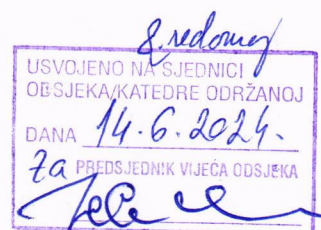 8. redovnoj
USVOJENO NA SJEDNICI
ODSJEKA/KATEDRE ODRŽANOJ
DANA 14.6.2024.
Za PREDSJEDNIK VIJEĆA ODSJEKA